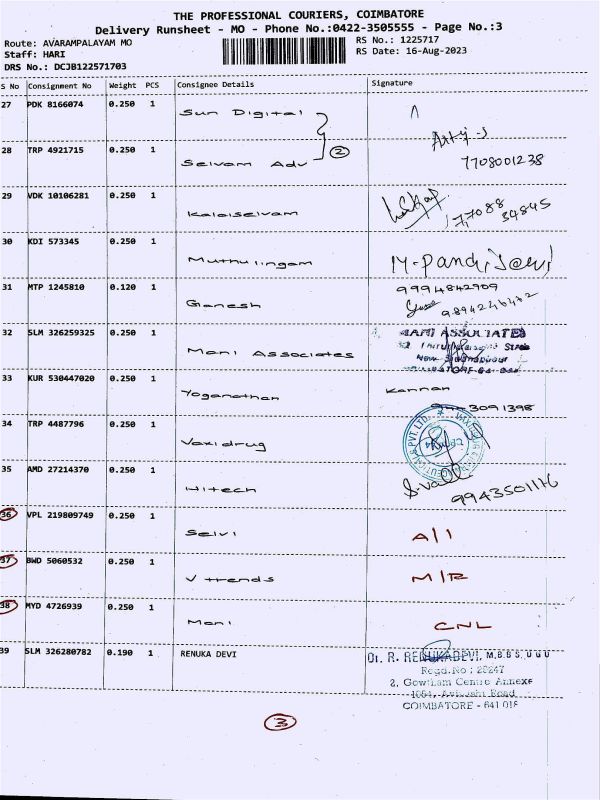 THE PROFESSIONAL COURIERS, COIMBATORE
Delivery Runsheet - MO - Phone No.:0422-3505555 - Page No.:3
Route: AVARAMPALAYAM MO
Staff: HARI
DRS No.: DCJB122571703
RS No.: 1225717
RS Date: 16-Aug-2023
S No Consignment No Weight PCS Consignee Details Signature
27 PDK 8166074 0.250 1 Sun Digital
28 TRP 4921715 0.250 1 Selvam Adv 2 7708001238
29 VDK 10106281 0.250 1 Kalaiselvam 77088 34845
30 KDI 573345 0.250 1 Muthulingam M-Pandi
31 MTP 1245810 0.120 1 Ganesh 9994842909
9894246472
32 SLM 326259325 0.250 1 Mani Associates MANI ASSOCIATES
33 KUR 530447020 0.250 1 Yoganathan Kannan
3091398
34 TRP 4487796 0.250 1 Vaxidrug
35 AMD 27214370 0.250 1 Hitech 9943501116
36 VPL 219809749 0.250 1 Selvi A/1
37 BWD 5060532 0.250 1 V trends M/R
38 MYD 4726939 0.250 1 Mani CNL
39 SLM 326280782 0.190 1 RENUKA DEVI Dr. R. RENUKADEVI, M.B.B.S, D G O
Regd.No : 28247
2, Gowtham Centre Annexe
1054, Avinashi Road
COIMBATORE - 641 018
3